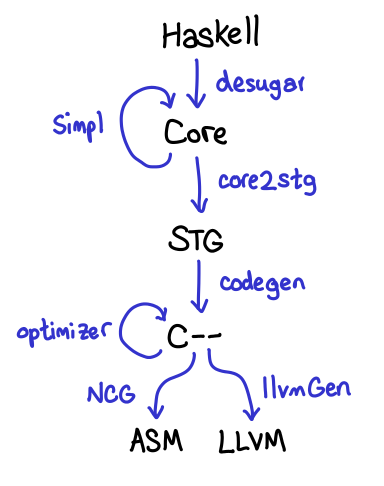 Haskell
desugar
Simpl
Core
core2stg
STG
codegen
optimizer
C--
NCG
llvmGen
ASM
LLVM